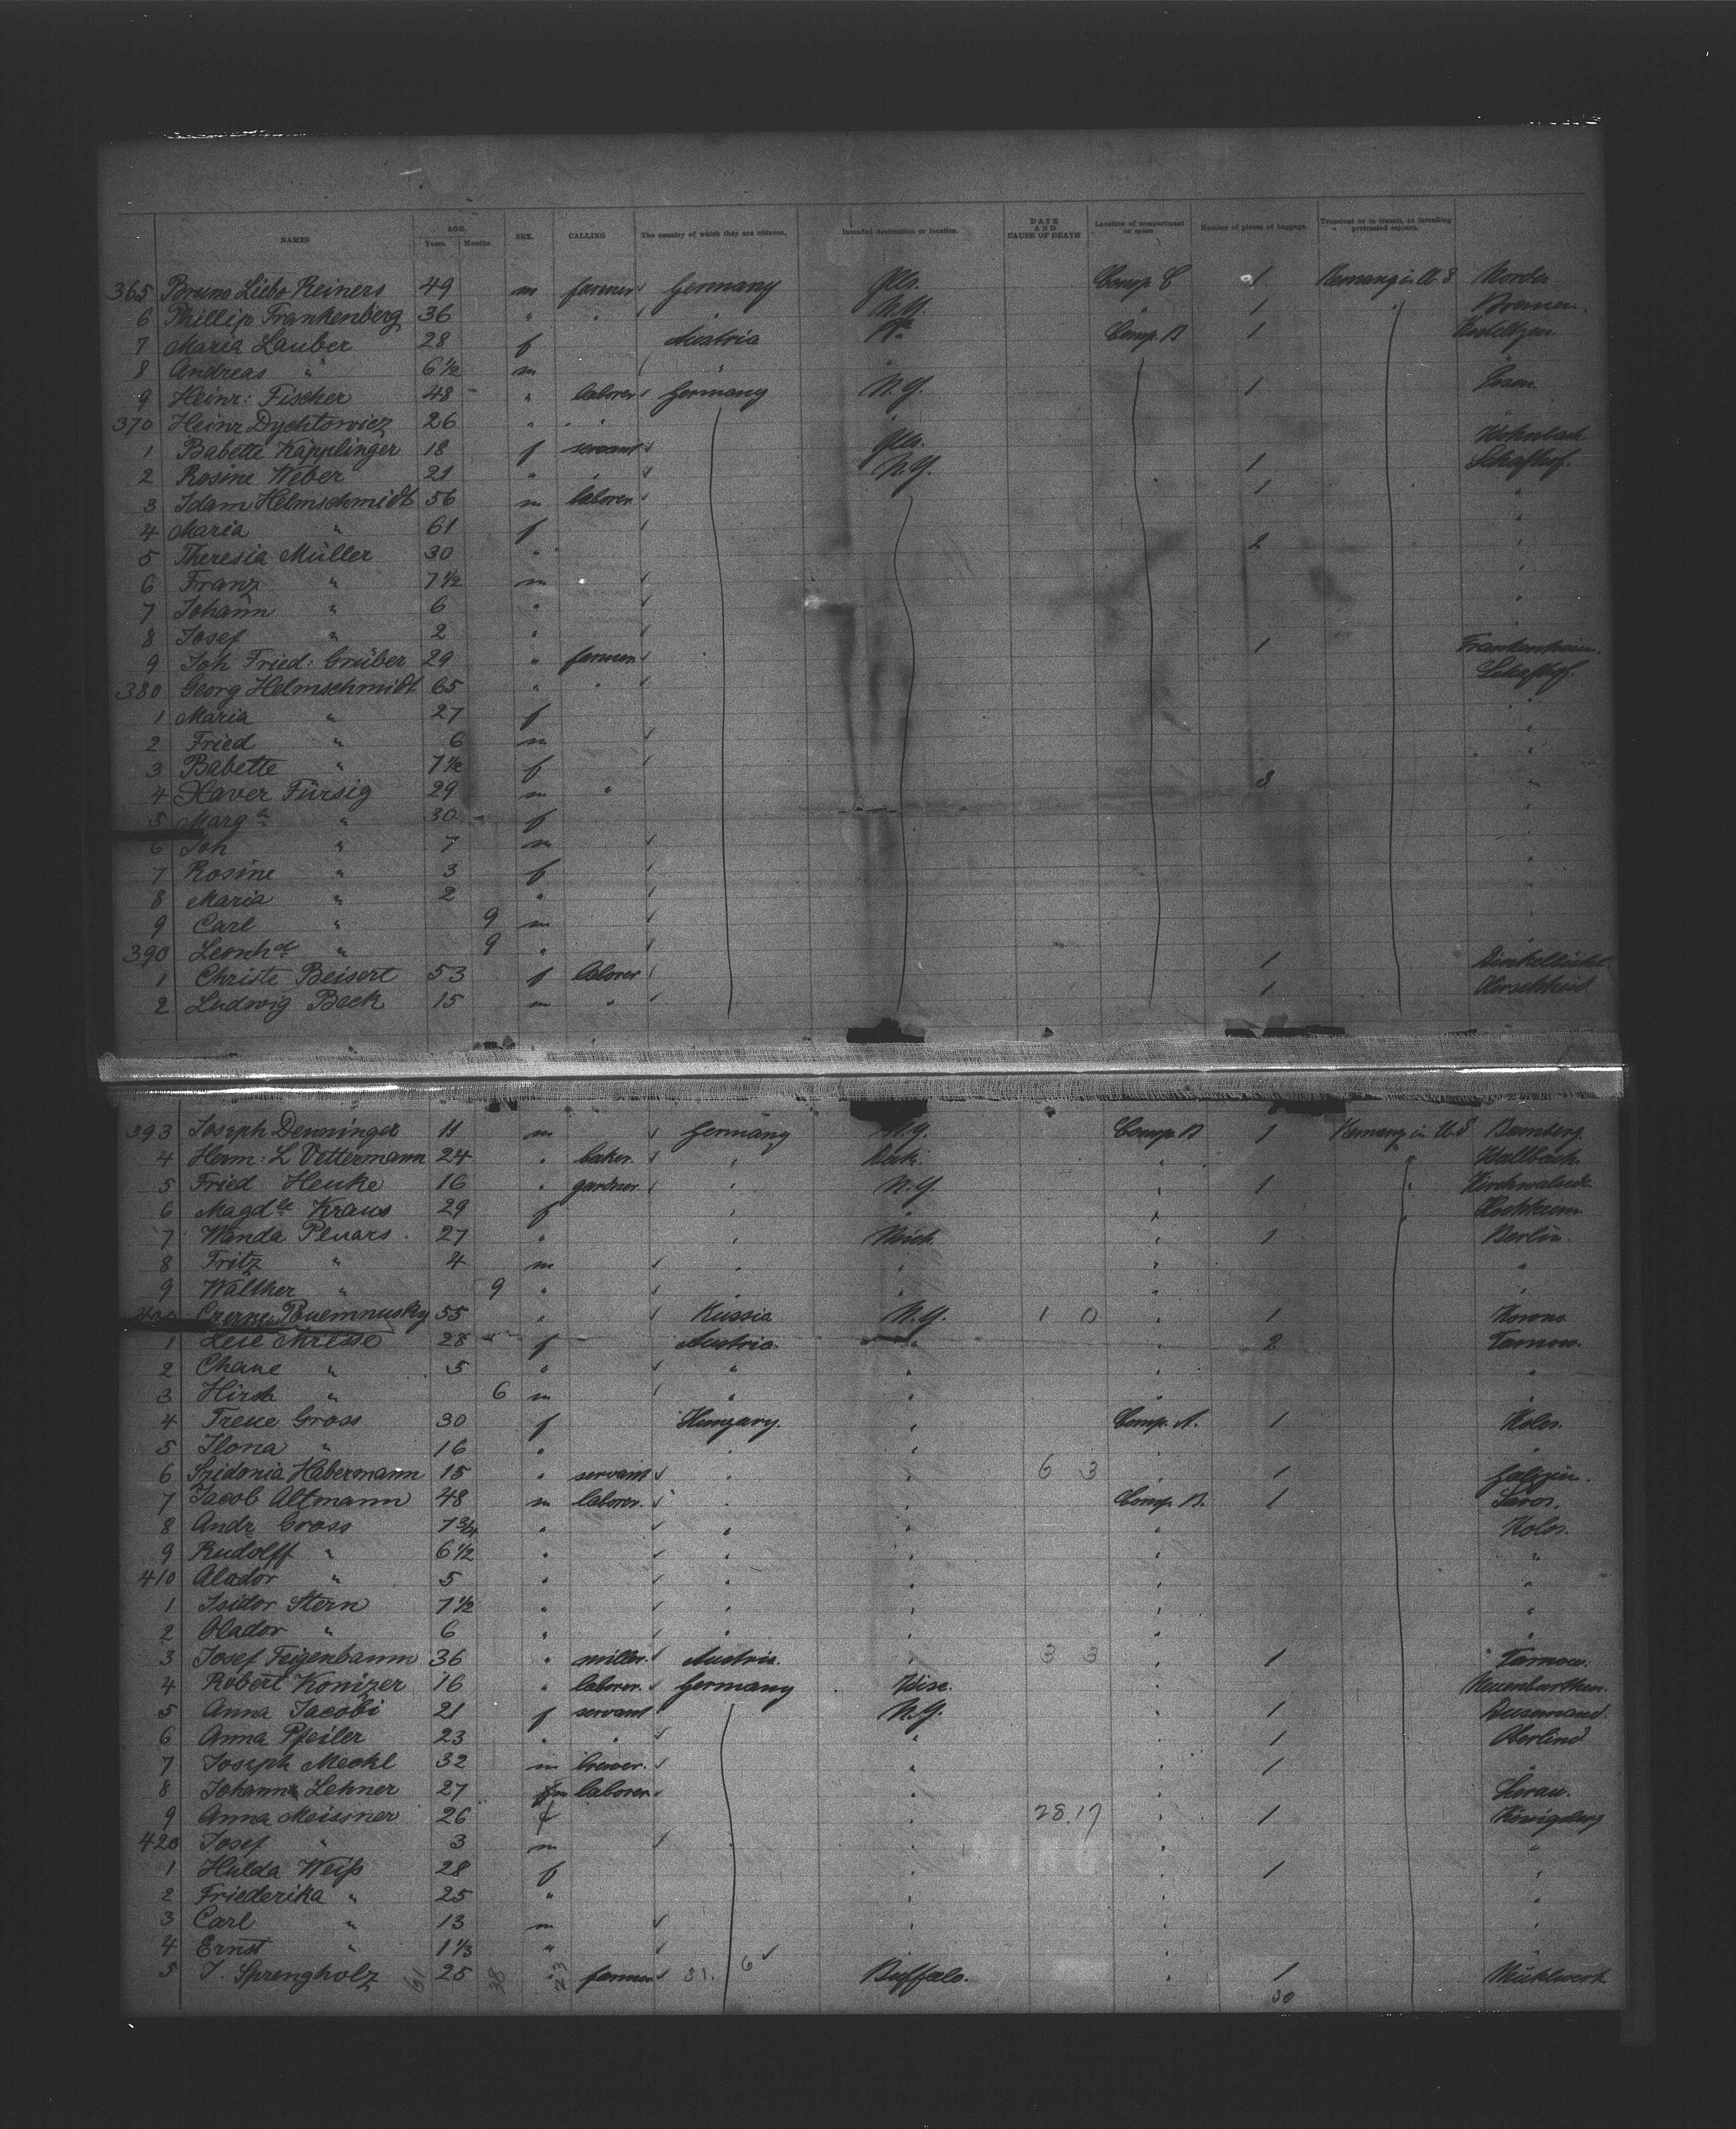 NAMES AGE. Years. Months. SEX. CALLING The country of which they are citizens. Intended destination or location. DATE AND CAUSE OF DEATH Location of compartment or space Number of pieces of baggage. Transient or in transit, or intending protracted sojourn.
365 Bruno Liebo Reiners 49 m farmer Germany Ills. Comp. C 1 Remang in U.S Norden
6 Phillip Frankenberg 36 " " " N.Y. " 1 " Bremen.
7 Maria Lauber 28 f Austria Pa. Comp. B 1
8 Andreas " 6 1/2 m " "
9 Heinr: Fischer 48 " laborer Germany N.Y. 1
370 Heinr Dychtowicz 26 " " "
1 Babette Käpplinger 18 f servant Ills.
2 Rosine Weber 21 " " N.Y. 1 Schafhof.
3 Adam Helmschmidt 56 m laborer 1 "
4 Maria " 61 f "
5 Theresia Müller 30 " 2 "
6 Franz " 7 1/2 m "
7 Johann " 6 " "
8 Josef " 2 " "
9 Joh Fried: Gruber 29 " farmer 1 Frankenheim.
380 Georg Helmschmidt 65 " " Schafhof.
1 Maria " 27 f "
2 Fried " 6 m "
3 Babette " 7 1/2 f "
4 Xaver Fürsig 29 m " 3 "
5 Marga " 30 f "
6 Joh " 7 m "
7 Rosine " 3 f "
8 Maria " 2 " "
9 Carl " 9 m "
390 Leonhd " 9 " "
1 Christe Beisert 53 f laborer 1
2 Ludwig Beck 15 m " 1
393 Joseph Denninger 11 m Germany N.Y. Comp. B 1 Remang in U.S Bamberg
4 Herm: L Vettermann 24 " baker. " " "
5 Fried Heuke 16 " gardner " N.Y. " 1 "
6 Magdle Kraus 29 f " " " Hochheim
7 Wanda Pluars. 27 " " Mich. " 1 Berlin.
8 Fritz " 4 m " " " "
9 Walther " 9 " " " " "
400 55 " Russia N.Y. 1 0 " 1 Kowno.
1 28 f Austria. " " 2 Tarnow.
2 Chane " 5 " " " " "
3 Hirsh " 6 m " " " "
4 Irene Gross 30 f Hungary. " Comp. A. 1 Kolos.
5 Ilona " 16 " " " " "
6 Szidonia Habermann 15 " servant " " 6 3 " 1
7 Jacob Altmann 48 m laborer. " " Comp. B. 1 Saros.
8 Andr Gross 7 3/4 " " " " Kolos.
9 Rudolff " 6 1/2 " " " " "
410 Alador " 5 " " " " "
1 Isidor Stern 7 1/2 " " " " "
2 Olador " 6 " " " " "
3 Josef Feigenbaum 36 " miller. Austria. " 3 3 " 1 Tarnow.
4 Robert Konizer 16 " laborer. Germany Wisc. "
5 Anna Jacobi 21 f servant N.Y. " 1
6 Anna Pfeiler 23 " " " " 1 Oberlind
7 Joseph Meckl 32 m brewer. " " 1 "
8 Johann Lehner 27 m laborer " "
9 Anna Meissner 26 f " 28.17 " 1 Königsberg
420 Josef " 3 m " " "
1 Hulda Weiß 28 f " " 1 "
2 Friederika " 25 " " " "
3 Carl " 13 m " " "
4 Ernst " 1 1/3 " " " "
5 J. Sprengholz 61 25 38 " 23 farmer 31. 6 Buffalo. " 1
30